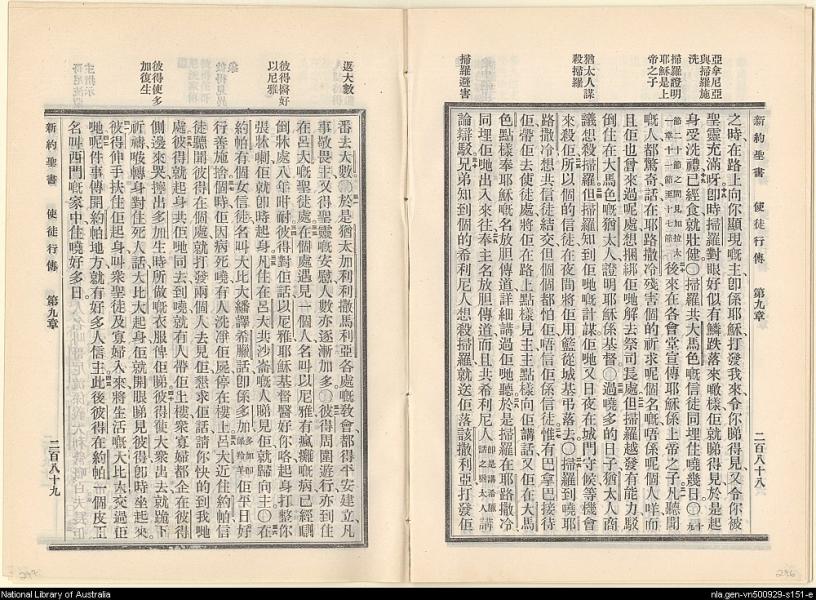 亞拿尼亞
與掃羅施
洗
掃羅證明
耶穌是上
帝之子
猶太人謀
殺掃羅
掃羅避害
新約聖書 使徒行傳 第九章 二百八十八
之時、在路上向你顯現嘅主、卽係耶穌、打發我來、令你睇得見、又令你被
聖靈充滿呀。卽時掃羅對眼好似有鱗跌落來噉樣、佢就睇得見、於是起
身受洗禮。已經食就壯健。〇掃羅共大馬色嘅信徒同埋住曉幾日。〇
節二十節之間見加拉太
一章十一節至十七節
後來在各會堂宣傳耶穌係上帝之子。凡聽聞
嘅人都驚奇話、在耶路撒冷殘害個的祈求呢個名嘅、唔係呢個人咩、而
且佢也曾來過呢處、想捆綁佢哋解去祭司長處。但掃羅越發有能力、駁
倒住在大馬色嘅猶太人、證明耶穌係基督。〇過曉多的日子、猶太人商
議想殺掃羅、但掃羅知到佢哋嘅計謀。佢哋又日夜在城門守候、等機會
來殺佢。所以個的信徒在夜間將佢用籃從城基弔落去。〇掃羅到曉耶
路撒冷、想共信徒結交、但個個都怕佢、唔信佢係信徒。惟有巴拿巴接待
佢、帶佢去使徒處、將佢在路上點樣見主、主點樣向佢講話、又佢在大馬
色點樣奉耶穌嘅名放胆傳道、詳細講過佢哋聽。於是掃羅在耶路撒冷
同埋佢哋出入來往、奉主名放胆傳道。而且共希利尼人 卽是講希臘話之猶太人 講
論辯駁。兄弟知到個的希利尼人想殺掃羅、就送佢落該撒利亞、打發佢
返大數
彼得醫好
以尼雅
彼得使多
加復生
番去大數。〇於是猶太加利利撒馬利亞各處嘅敎會、都得平安建立、凡
事敬畏主、又得聖靈嘅安慰、人數亦逐漸加多。〇彼得周圍遊行、亦到住
在呂大嘅聖徒處。在個處遇見一個人名叫以尼雅、有瘋癱嘅病、已經瞓
倒牀處八年咁耐。彼得對佢話、以尼雅、耶穌基督醫好你咯、起身打整你
張牀喇、佢就卽時起身。凡住在呂大共沙崙嘅人睇見佢、就歸向主。〇在
約帕有個女信徒、名叫大比大、繙譯希臘話卽係多加 佢平日好
行善施捨。個時佢因病死曉、有人洗凈佢屍停在樓上。呂大近住約帕、信
徒聽聞彼得在個處、就打發兩個人去見佢、懇求佢話、請你快的到我哋
處。彼得就起身共佢哋同去、到曉就有人帶佢上樓。衆寡婦都企在彼得
側邊來哭、攞出多加生時所做嘅衣服俾佢睇。彼得使大衆出去、就跪下
祈禱、轉身對住死人話、大比大起身。佢就開眼睇見彼得、卽時坐起來。
彼得伸手扶住佢起身、叫衆聖徒及寡婦入來、將生活嘅大比大交過佢
哋。呢件事傳開約帕地方、就有好多人信主。此後彼得在約帕一個皮工
名叫西門嘅家中住曉好多日。
新約聖書 使徒行傳 第九章 二百八十九
National Library of Australia
nla.gen-vn500929-s151-e